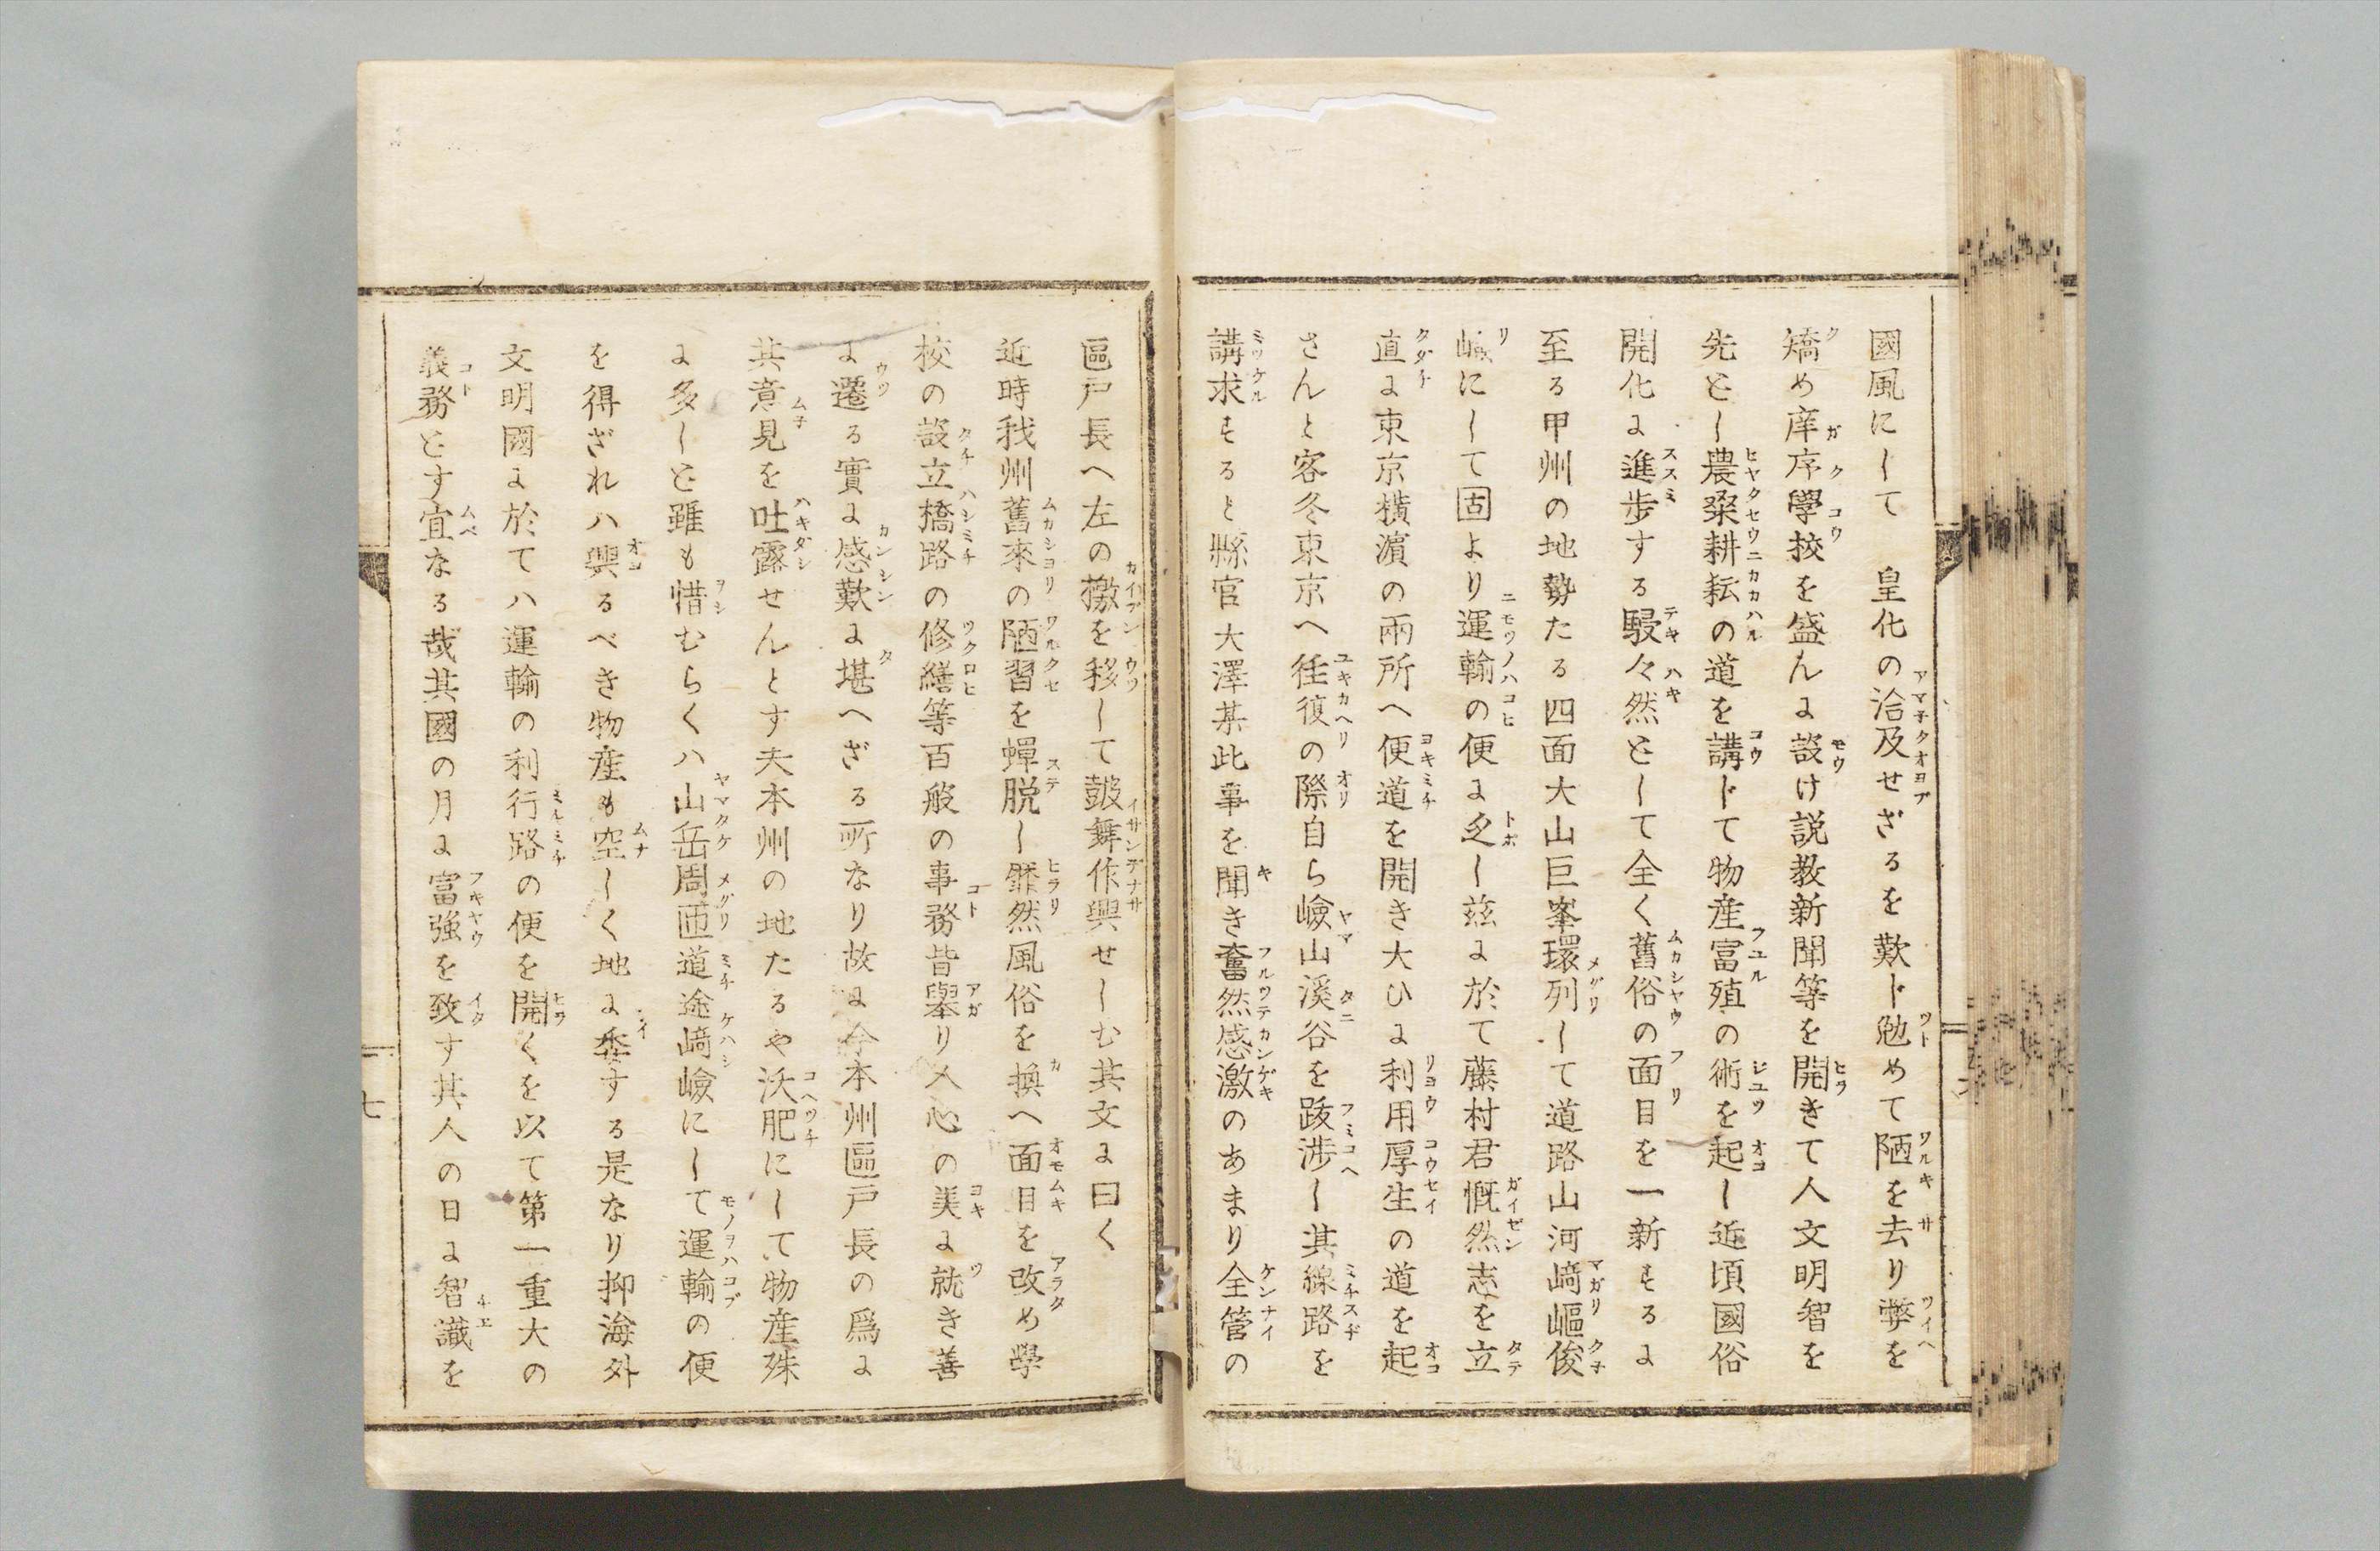 國風にして　皇化の洽及せざるを歎じ勉めて陋を去り弊を
矯め庠序學校を盛んに設け説教新聞等を開きて人文明智を
先とし農桒耕耘の道を講じて物産富殖の術を起し近頃國俗
開化に進歩する駸々然として全く舊俗の面目を一新するに
至る甲州の地勢たる四面大山巨峯環列して道路山河﨑嶇俊
嶮にして固より運輸の便に乏し茲に於て藤村君慨然志を立
直に東京横濵の兩所へ便道を開き大ひに利用厚生の道を起
さんと客冬東京へ徃復の際自ら嶮山溪谷を跋渉し其線路を
講求すると縣官大澤某此事を聞き奮然感激のあまり全管の
區戸長へ左の檄を移して皷舞作興せしむ其文に曰く
近時我州舊來の陋習を蟬脱し飜然風俗を換へ面目を改め學
校の設立橋路の修繕等百般の事務皆擧り人心の美に就き善
に遷る實に感歎に堪へざる所なり故に今本州區戸長の爲に
其意見を吐露せんとす夫本州の地たるや沃肥にして物産殊
に多しと雖も惜むらくハ山岳周匝道途﨑嶮にして運輸の便
を得ざれハ興るべき物産も空しく地に委する是なり抑海外
文明國に於てハ運輸の利行路の便を開くを以て第一重大の
義務とす宜なる哉其國の月に富強を致す其人の日に智識を
七